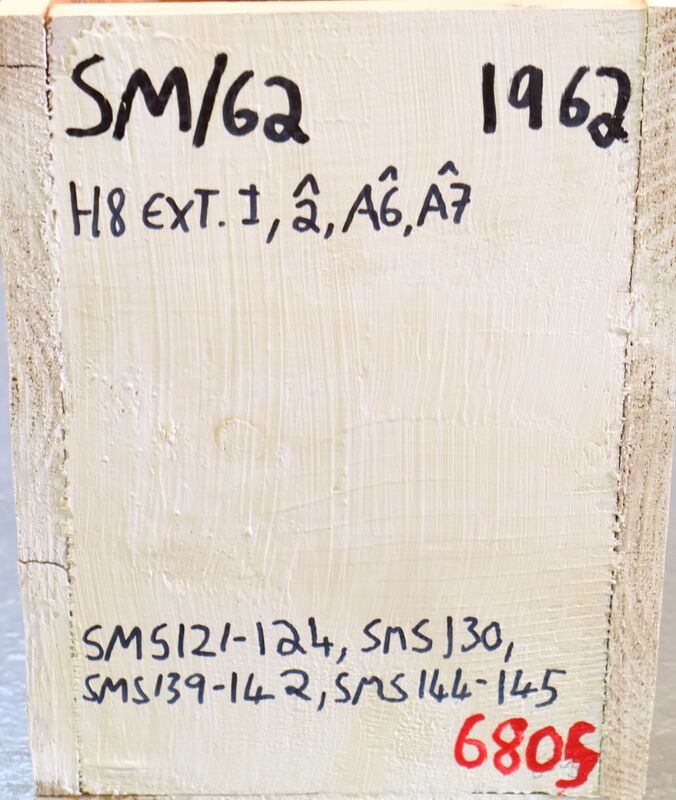 SM/62 1962
H8 EXT. I, 2̂, A6̂, A7̂
SMS121-124, SMS130,
SMS139-142, SMS144-145
6805